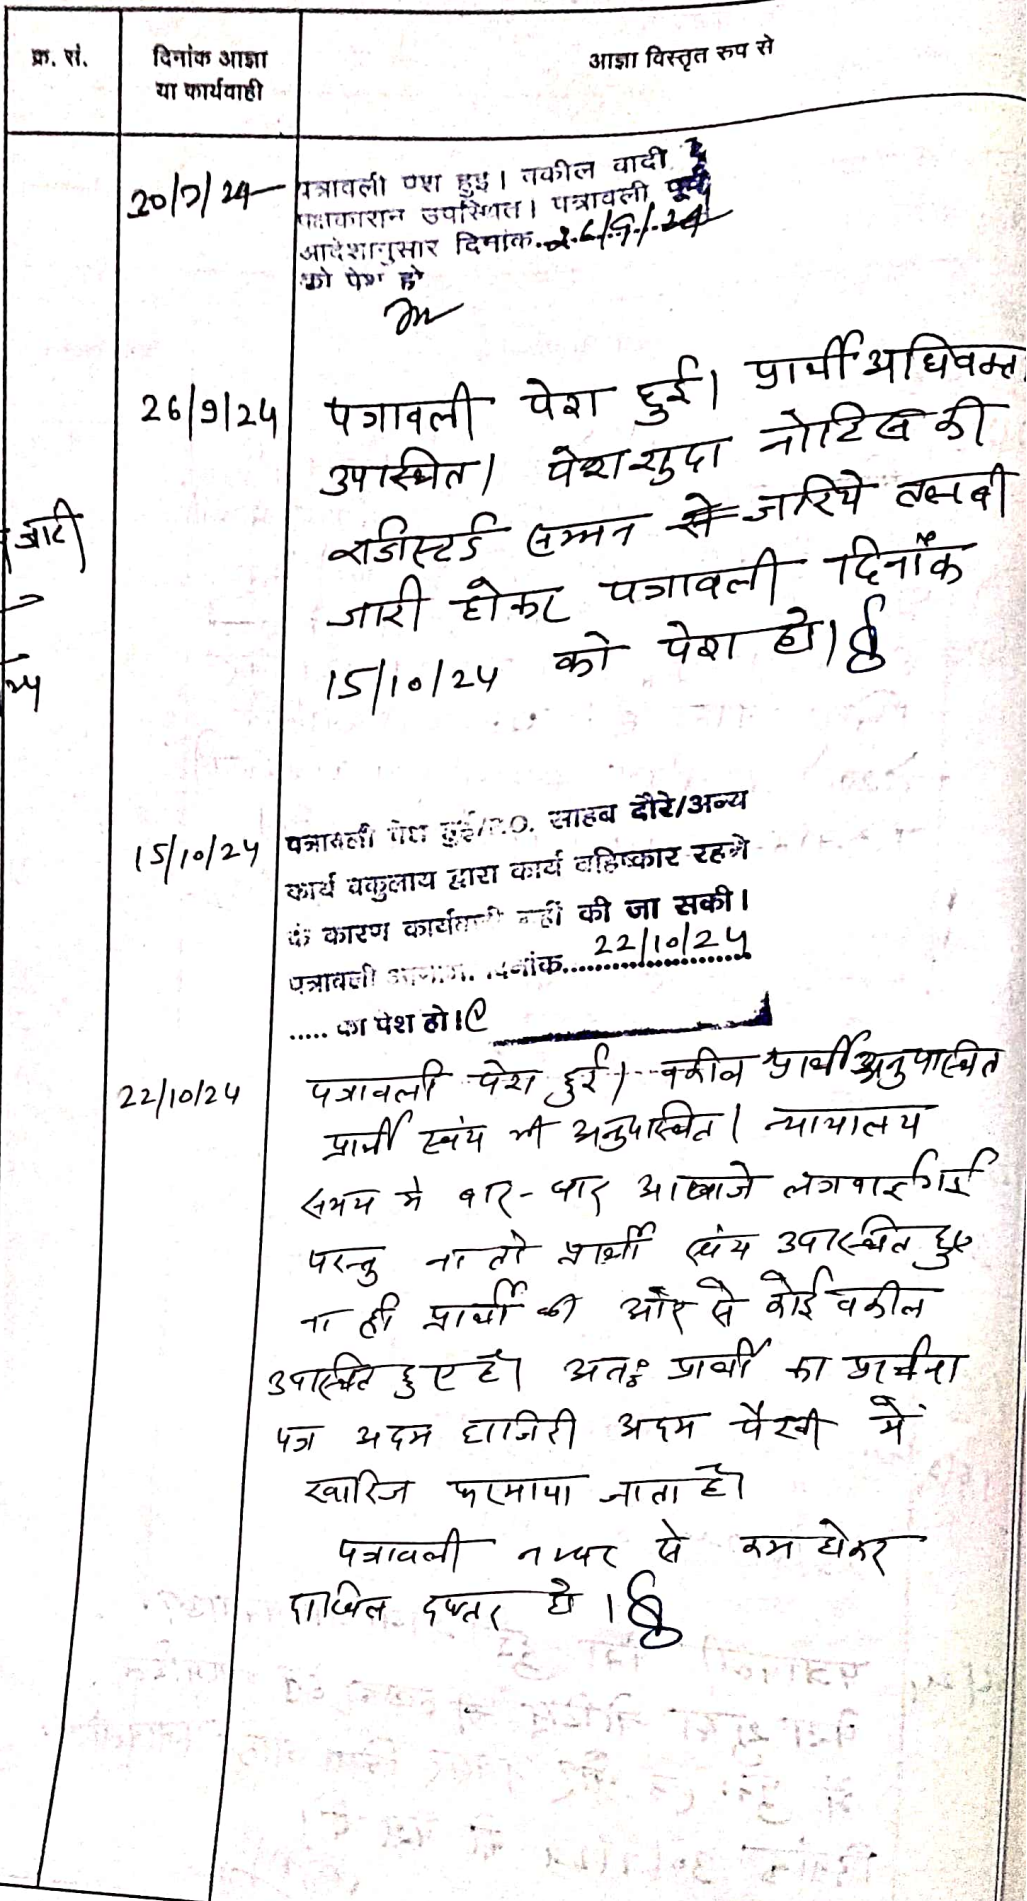 क्र. सं.
दिनांक आज्ञा
या कार्यवाही
आज्ञा विस्तृत रुप से
20/9/24
पत्रावली पेश हुई। वकील वादी
पक्षकारान उपस्थित। पत्रावली पूर्व
आदेशानुसार दिनांक.26/9/24
को पेश हो
26/9/24
पत्रावली पेश हुई। प्रार्थी अधिवक्ता
उपस्थित। पेशशुदा नोटिस की
रजिस्टर्ड सम्मन से जरिये तलबी
जारी होकर पत्रावली दिनाँक
15/10/24 को पेश हो।
जारी
24
15/10/24
पत्रावली पेश हुई/P.O. साहब दौरे/अन्य
कार्य वकुलाय द्वारा कार्य बहिष्कार रहने
के कारण कार्यवाही नहीं की जा सकी।
पत्रावली दिनांक....22/10/24
..... को पेश हो।
22/10/24
पत्रावली पेश हुई। वकील प्रार्थी अनुपस्थित
प्रार्थी स्वंय भी अनुपस्थित। न्यायालय
समय मे बार-बार आवाजे लगवाई गई
परन्तु ना तो प्रार्थी स्वंय उपस्थित हुए
ना ही प्रार्थी की ओर से कोई वकील
उपस्थित हुए है। अतः प्रार्थी का प्रार्थना
पत्र अदम हाजिरी अदम पैरवी में
खारिज फरमाया जाता है।
पत्रावली नम्बर से कम होकर
दाखिल दफ्तर हो।